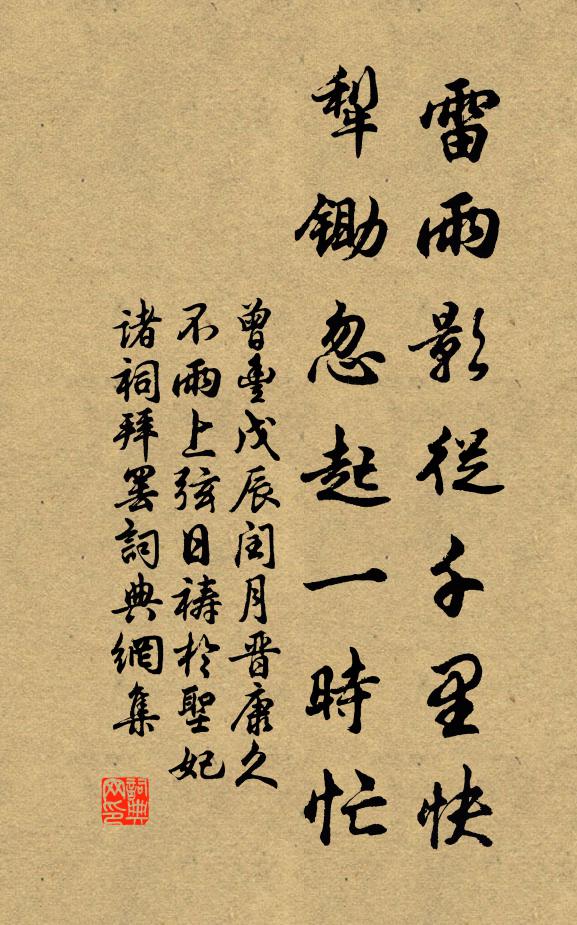 雷雨影從千里快
犁鋤忽起一時忙
曾豐戊辰閏月晋康久
不雨上弦日禱於聖妃
诸祠拜罢詞典網集
詞典网印